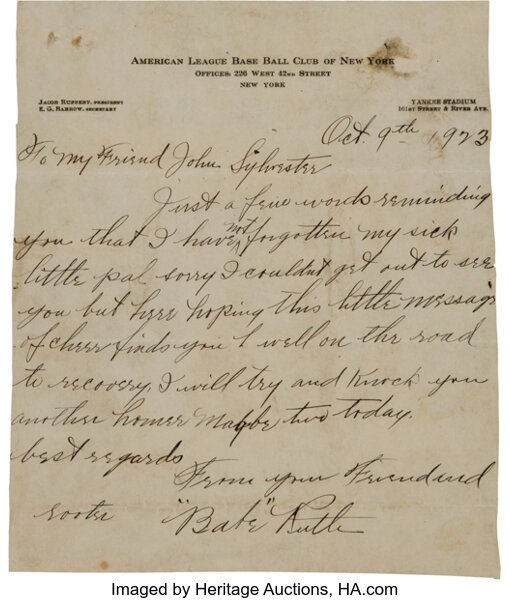 AMERICAN LEAGUE BASE BALL CLUB OF NEW YORK
OFFICES: 226 WEST 42ND STREET
NEW YORK
JACOB RUPPERT, PRESIDENT
E. G. BARROW, SECRETARY
YANKEE STADIUM
161ST STREET & RIVER AVE.
Oct. 9th 1923
To My Friend John Sylvester
Just a few words reminding
you that I have not forgotten my sick
little pal sorry I couldnt get out to see
you but here hoping this little message
of cheer finds you well on the road
to recovery. I will try and Knock you
another homer Maybe two today.
best regards
From your Friend and
rooter "Babe" Ruth
Imaged by Heritage Auctions, HA.com